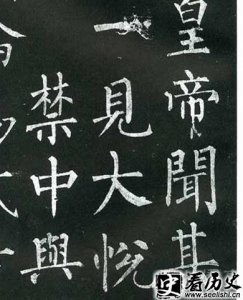 皇帝聞其
一見大悅
禁中與
看历史
www.seelishi.cn